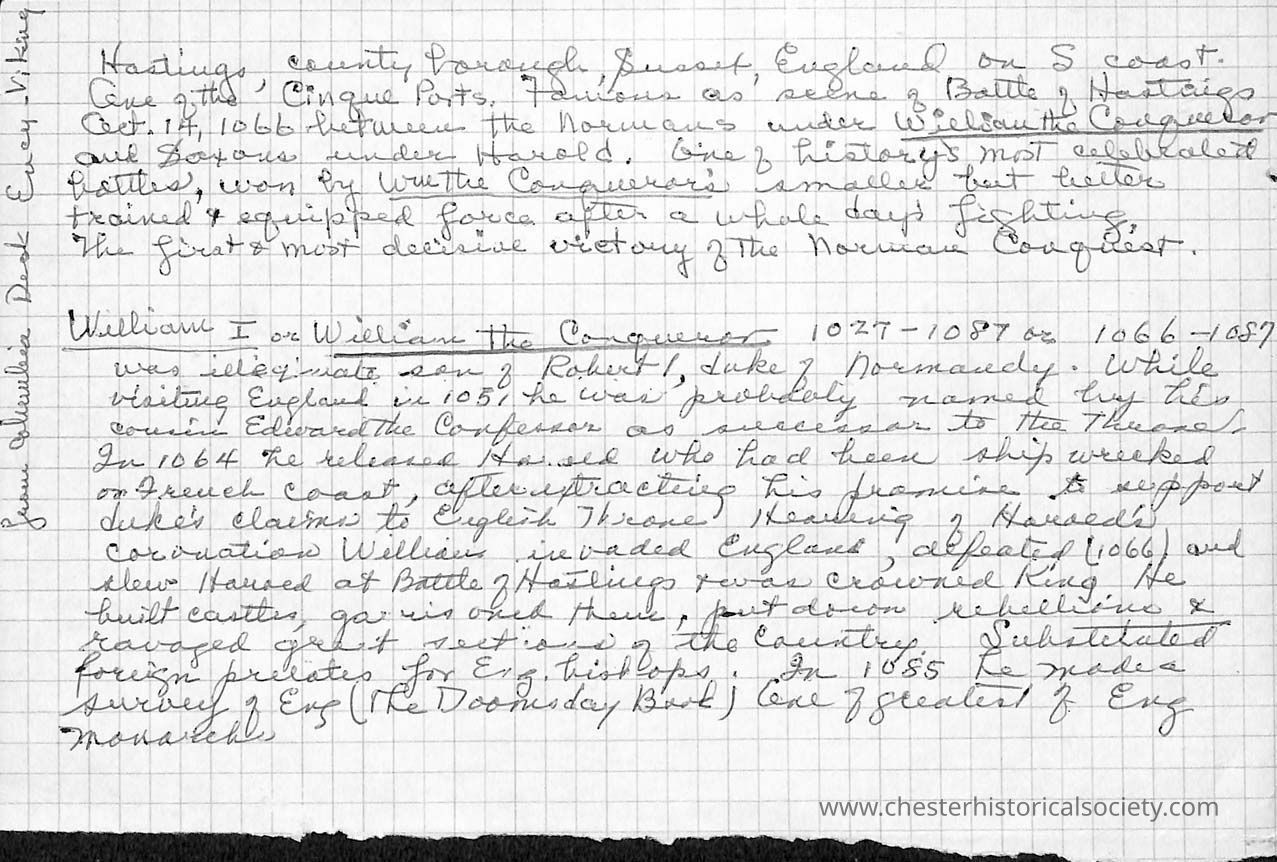 Hastings, county borough, Sussex, England on S coast.
One of the Cinque Ports. Famous as scene of Battle of Hastings
Oct. 14, 1066 between the Normans under William the Conqueror
and Saxons under Harold. One of history's most celebrated
battles, won by Wm the Conqueror's smaller but better
trained & equipped force after a whole day's fighting.
The first & most decisive victory of the Norman Conquest.
William I or William the Conqueror 1027-1087 or 1066-1087
was illegimate son of Robert I, duke of Normandy. While
visiting England in 1051 he was probably named by his
cousin Edward the Confessor as successor to the Throne.
In 1064 he released Harold who had been shipwrecked
on French coast, after extracting his promise to support
duke's claims to English Throne. Hearing of Harold's
coronation William invaded England, defeated (1066) and
slew Harold at Battle of Hastings & was crowned King. He
built castles, garrisoned them, put down rebellions &
ravaged great sections of the country. Substituted
foreign prelates for Eng. bishops. In 1085 he made a
survey of Eng (The Doomsday Book) One of greatest of Eng
monarchs
From Columbia Desk Ency. Viking
www.chesterhistoricalsociety.com